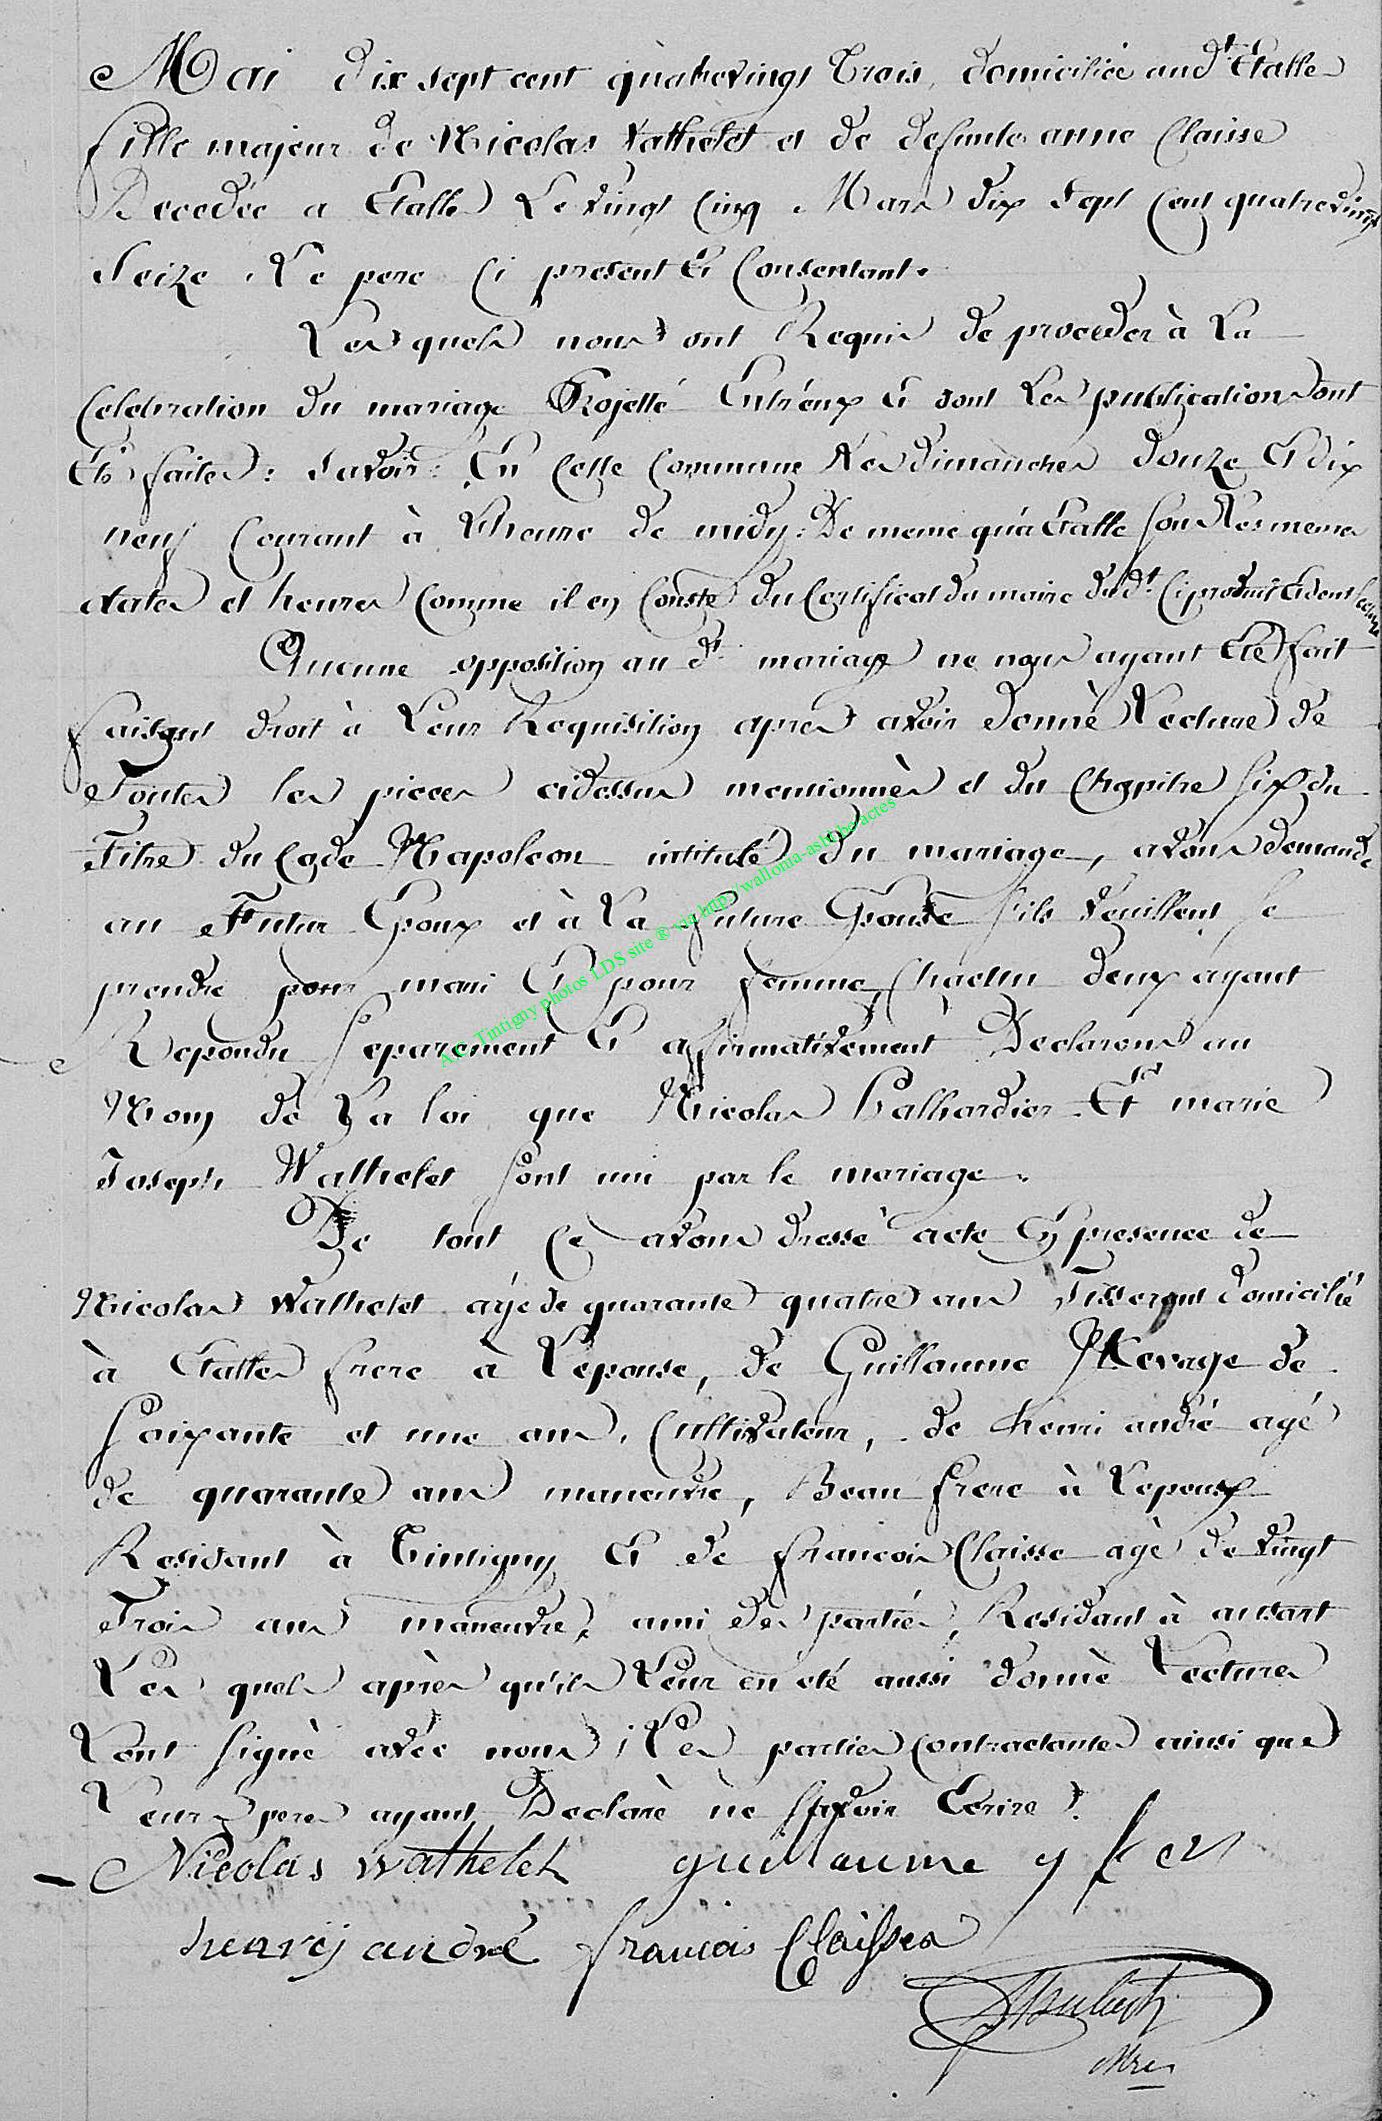 Mai dix sept cent quatrevingt Trois, domiciliée aud.t Etalle
fille majeur de Nicolas Vathelet et de defunte anne Claisse
Decedée a Etalle Le vingt Cinq Mars dix Sept Cent quatrevingt
Seize, Le pere Ci present Et Consentant.
Les quels nous ont Requis de proceder à La
Celebration du mariage Projetté Entréux Et dont Les publications ont
Eté faites : Savoir : En Cette Commune Les dimanches douze Et dix
neuf Courant à L'heure de midy : De meme qu'a Etalle Sous Les memes
dates et heures Comme il en Conste du Certificat du maire dud.t Ci produit Et dont
Aucune opposition au d.t mariage ne nous ayant Eté fait
faisant droit à Leur Requisition apres avoir donné Lecture de
Toutes les pieces cidessus mentionnès et du Chapitre Six du
Titre du Code Napoleon intitulé Du mariage, avons demandé
au Futur Epoux et à La future Epouse S'ils veuillent Se
prendre pour mari Et pour femme, Chacun deux ayant
Repondu Separement Et affirmativement Declarons au
Nom de La loi que Nicolas Halhardier Et marie
Joseph Wathelet Sont uni par le mariage.
De tout Ce avons dressé acte En presence de
Nicolas Wathelet agé de quarante quatre ans Tisserant Domicilié
à Etalle frere à L'epouse, de Guillaume de
Soixante et une ans, Cultivateur, de henri andré agé
de quarante ans maneuvre, Beau frere à L'epoux
Residant à Tintigny Et de francois Claisse agé de vingt
Trois ans maneuvre, ami des parties, Residant à ansart
Les quels après qu'ils Leur en eté aussi donnè Lectures
L'ont Signè avéc nous, Les parties Contractantes ainsi que
Leurs peres ayant Declarè ne Savoir Ecrire.
Nicolas wathelet guillaume
henrij andré francois Claisse
A.C. Tintigny photos LDS site ® via http://walloma-asbl.be/actes